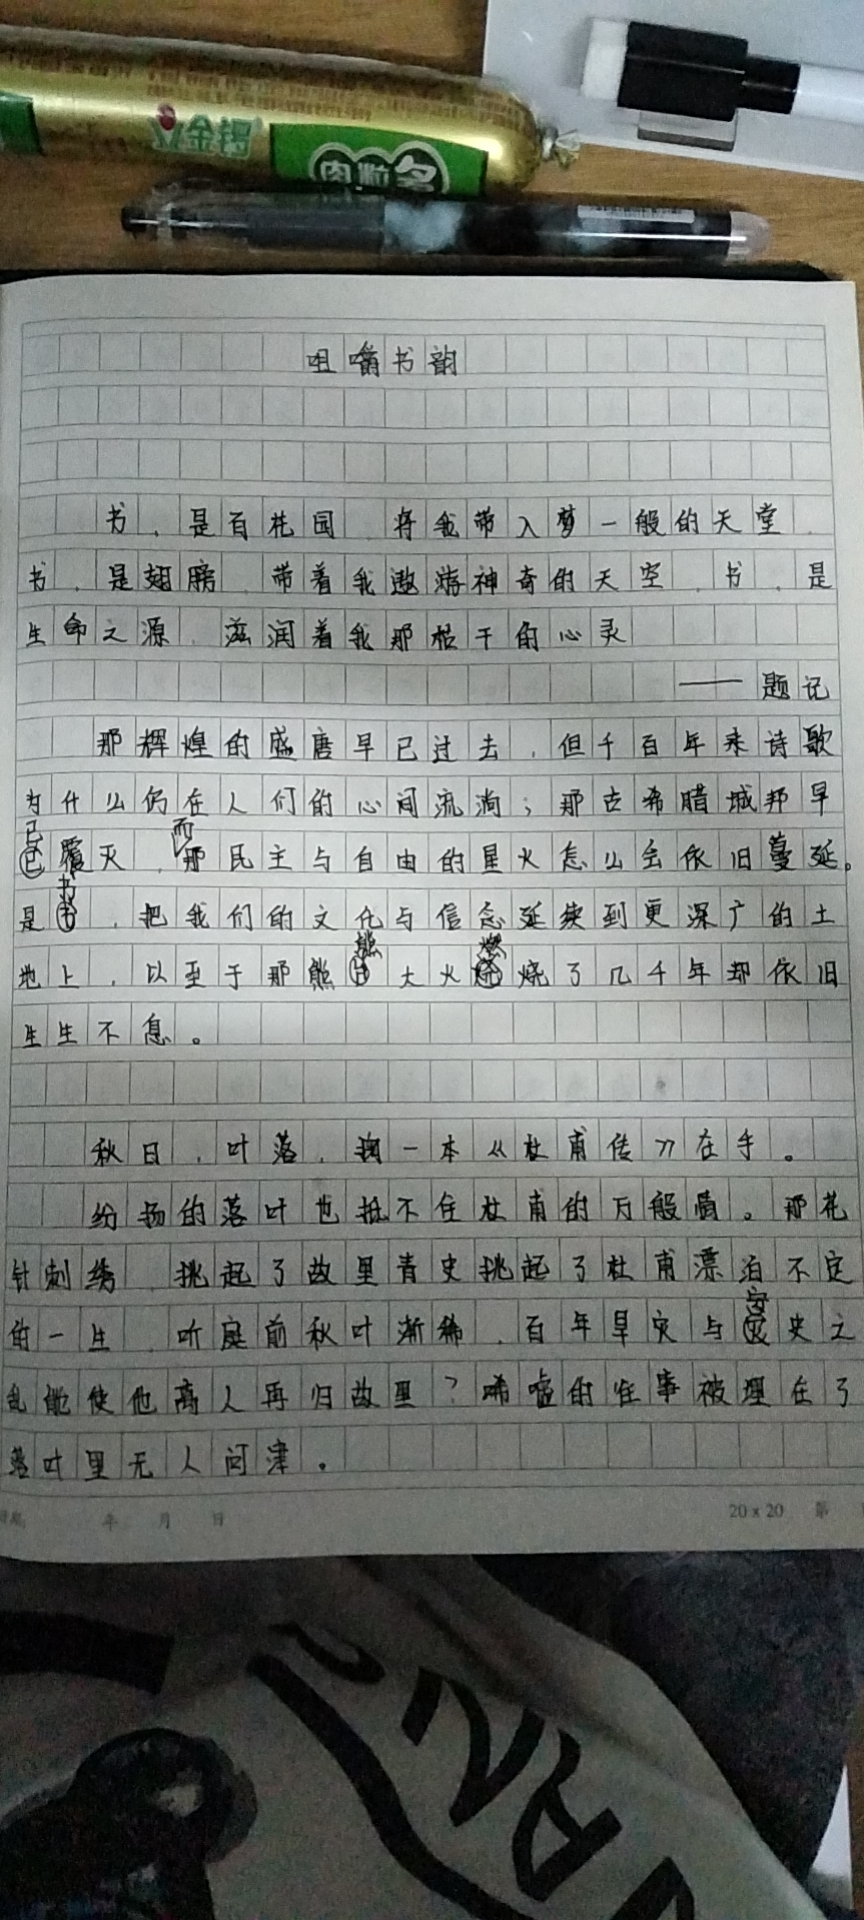 金锣
肉粒多
咀嚼书韵
书，是百花园，将我带入梦一般的天堂，
书，是翅膀，带着我遨游神奇的天空，书，是
生命之源，滋润着我那枯干的心灵
——题记
那辉煌的盛唐早已过去，但千百年来诗歌
为什么仍在人们的心间流淌；那古希腊城邦早
已覆灭，而那民主与自由的星火怎么会依旧蔓延。
是书，把我们的文化与信念延续到更深广的土
地上，以至于那熊熊大火燃烧了几千年却依旧
生生不息。
秋日，叶落，掬一本《杜甫传》在手。
纷扬的落叶也抵不住杜甫的万般情。那花
针刺绣，挑起了故里青史挑起了杜甫漂泊不定
的一生，听庭前秋叶渐稀，百年旱灾与安史之
乱能使他离人再归故里？唏嘘的往事被埋在了
落叶里无人问津。
年 月 日
20 x 20 第